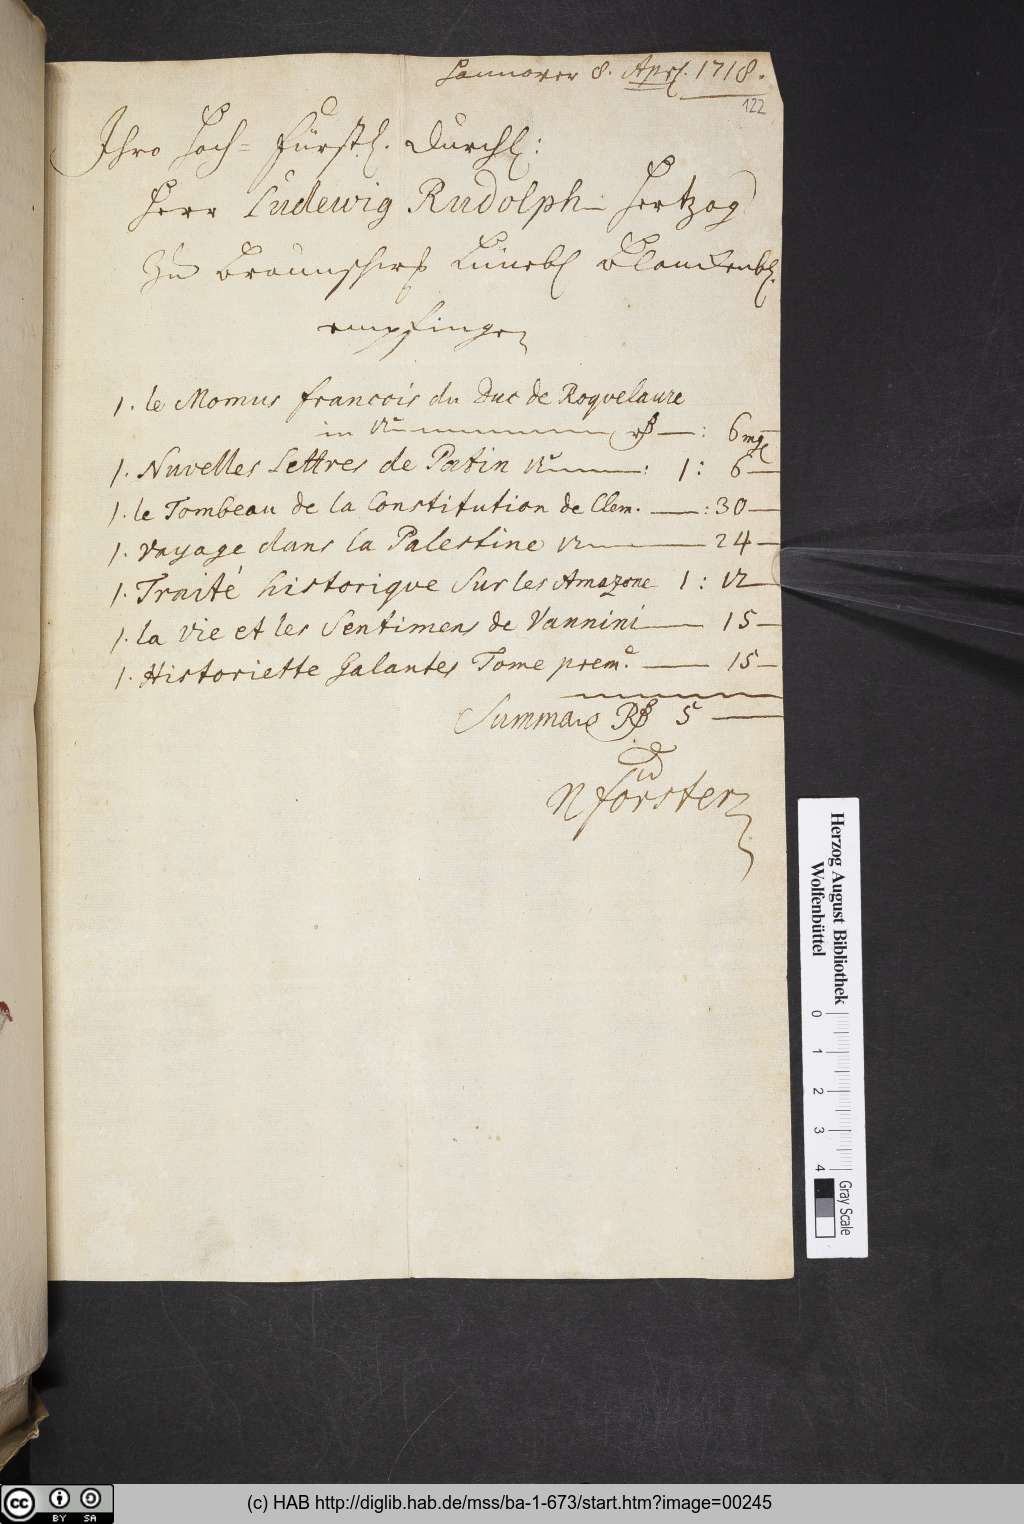 Hannover 8. Apr. 1718.
122
Ihro Hoch= Fürstl. Durchl:
Herr Ludewig Rudolph Hertzog
Zu Braunschw Lüneb Blanckenb.
empfingen
1. le Momus francois du Duc de Roquelaure
in 12 — : 6 mgl
1. Nuvelles Lettres de Patin 12 — 1 : 6 —
1. le Tombeau de la Constitution de Clem. — : 30 —
1. vayage dans la Palestine 12 — 24 —
1. Traité historique Sur les Amazone 1 : 12
1. la vie et les Sentimens de Vannini — 15 —
1. Historiette Galantes Tome prem.e — 15 —
Summa 5 —
N förster
Herzog August Bibliothek
Wolfenbüttel
0 1 2 3 4
Gray Scale
cc BY SA
(c) HAB http://diglib.hab.de/mss/ba-1-673/start.htm?image=00245